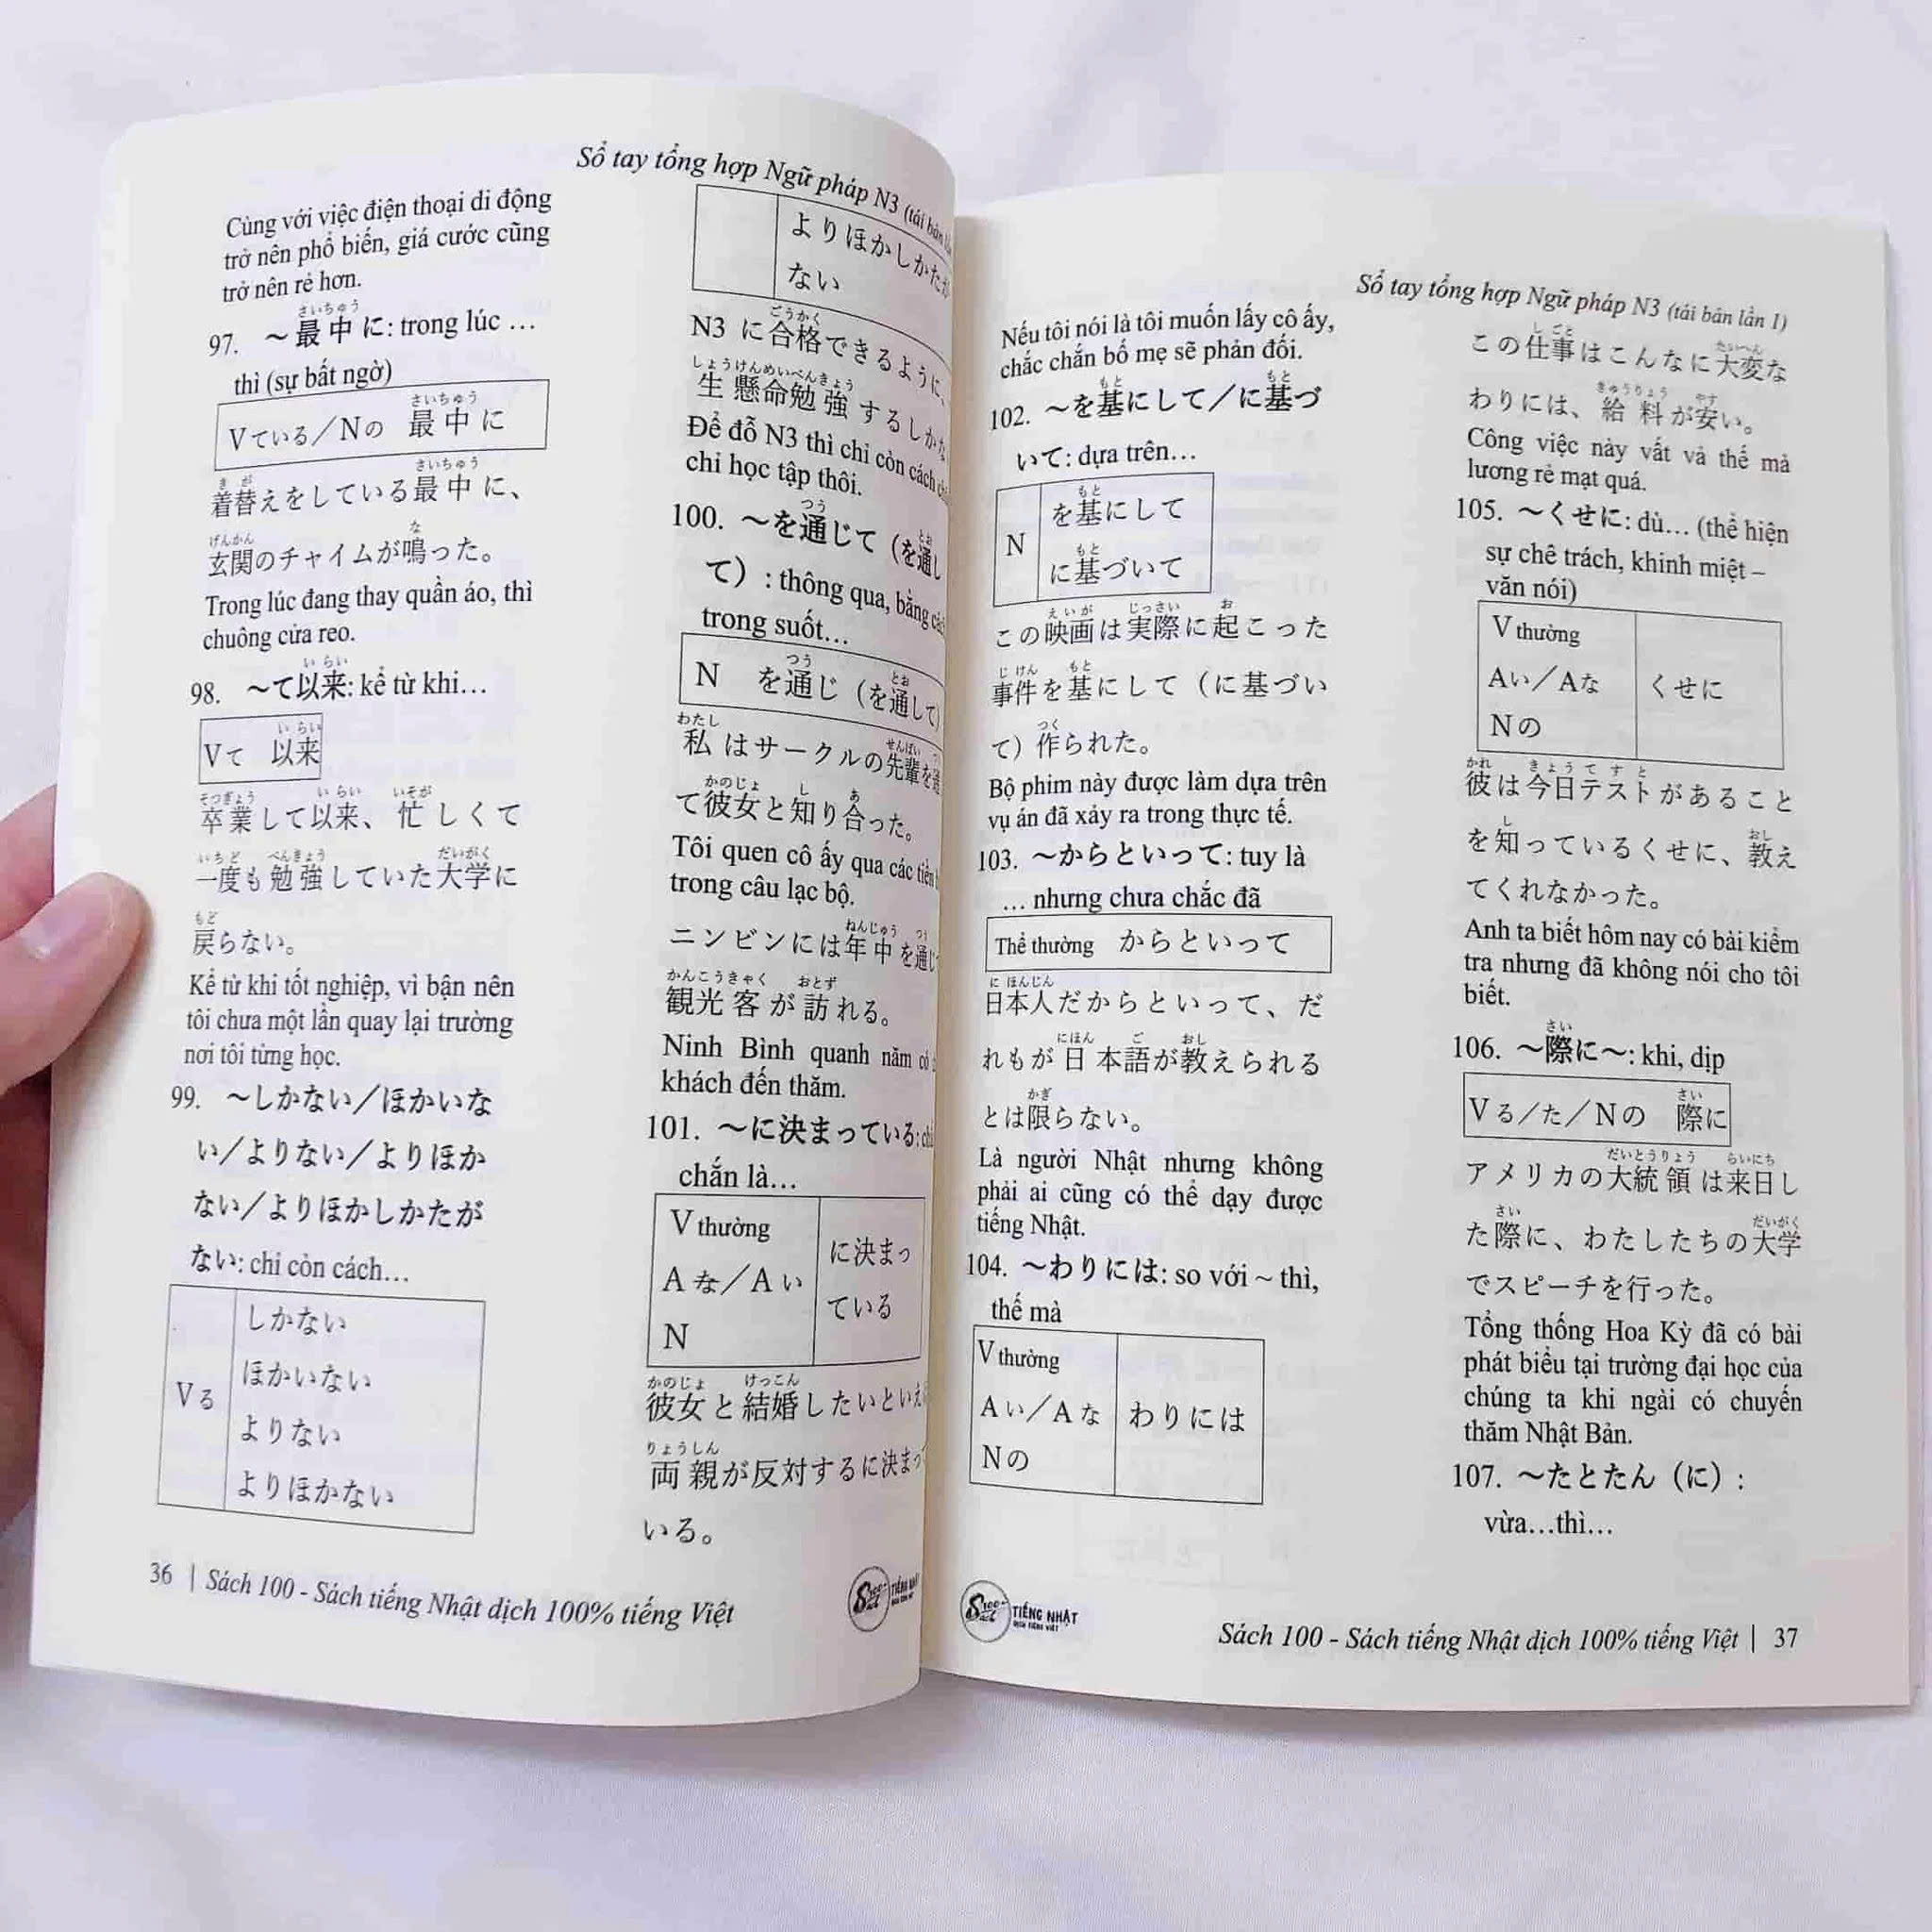 Sổ tay tổng hợp Ngữ pháp N3 (tái bản
Cùng với việc điện thoại di động
trở nên phổ biến, giá cước cũng
trở nên rẻ hơn.
さいちゅう
97. ～最中に: trong lúc …
thì (sự bất ngờ)
さいちゅう
Vている／Nの 最中に
きが さいちゅう
着替えをしている最中に、
げんかん な
玄関のチャイムが鳴った。
Trong lúc đang thay quần áo, thì
chuông cửa reo.
いらい
98. ～て以来: kể từ khi…
いらい
Vて 以来
そつぎょう いらい いそが
卒業して以来、忙しくて
いちど べんきょう だいがく
一度も勉強していた大学に
もど
戻らない。
Kể từ khi tốt nghiệp, vì bận nên
tôi chưa một lần quay lại trường
nơi tôi từng học.
99. ～しかない／ほかいな
い／よりない／よりほか
ない／よりほかしかたが
ない: chỉ còn cách…
Vる
しかない
ほかいない
よりない
よりほかない
よりほかしかたが
ない
ごうかく
N3 に合格できるように、
しょうけんめいべんきょう
生懸命勉強するしかな
Để đỗ N3 thì chỉ còn cách
chỉ học tập thôi.
つう とお
100. ～を通じて（を通し
て）: thông qua, bằng
trong suốt…
つう とお
N を通じ（を通して）
わたし せんぱい
私はサークルの先輩を
かのじょ し あ
て彼女と知り合った。
Tôi quen cô ấy qua các
trong câu lạc bộ.
ねんじゅう つう
ニンビンには年中を通じ
かんこうきゃく おとず
観光客が訪れる。
Ninh Bình quanh năm có
khách đến thăm.
101. ～に決まっている:
chắn là…
V thường
Aな／Aい
N
に決まっ
ている
かのじょ けっこん
彼女と結婚したいといえ
りょうしん
両親が反対するに決まっ
いる。
36 | Sách 100 - Sách tiếng Nhật dịch 100% tiếng Việt
Sổ tay tổng hợp Ngữ pháp N3 (tái bản lần 1)
Nếu tôi nói là tôi muốn lấy cô ấy,
chắc chắn bố mẹ sẽ phản đối.
もと もと
102. ～を基にして／に基づ
いて: dựa trên…
N
もと
を基にして
もと
に基づいて
えいが じっさい お
この映画は実際に起こった
じけん もと
事件を基にして（に基づい
つく
て）作られた。
Bộ phim này được làm dựa trên
vụ án đã xảy ra trong thực tế.
103. ～からといって: tuy là
… nhưng chưa chắc đã
Thể thường からといって
にほんじん
日本人だからといって、だ
にほん ご おし
れもが日本語が教えられる
かぎ
とは限らない。
Là người Nhật nhưng không
phải ai cũng có thể dạy được
tiếng Nhật.
104. ～わりには: so với ~ thì,
thế mà
V thường
Aい／Aな
Nの
わりには
しごと たいへん
この仕事はこんなに大変な
きゅうりょう やす
わりには、給料が安い。
Công việc này vất vả thế mà
lương rẻ mạt quá.
105. ～くせに: dù… (thể hiện
sự chê trách, khinh miệt –
văn nói)
V thường
Aい／Aな
Nの
くせに
かれ きょうてすと
彼は今日テストがあること
し おし
を知っているくせに、教え
てくれなかった。
Anh ta biết hôm nay có bài kiểm
tra nhưng đã không nói cho tôi
biết.
さい
106. ～際に～: khi, dịp
さい
Vる／た／Nの 際に
だいとうりょう らいにち
アメリカの大統領は来日し
さい だいがく
た際に、わたしたちの大学
でスピーチを行った。
Tổng thống Hoa Kỳ đã có bài
phát biểu tại trường đại học của
chúng ta khi ngài có chuyến
thăm Nhật Bản.
107. ～たとたん（に）:
vừa…thì…
TIẾNG NHẬT
Sách 100 - Sách tiếng Nhật dịch 100% tiếng Việt | 37